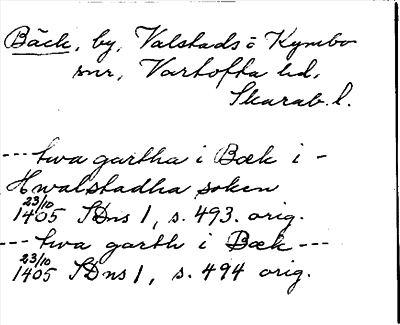 Bäck, by, Valstads o Kymbo
snr, Vartofta hd,
Skarab. l.
--- twa gartha i Bæk i -
Hwalstadha soken
23/10
1405 SDns 1, s. 493. orig.
--- twa garth i Bæk ---
23/10
1405 SDns 1, s. 494 orig.